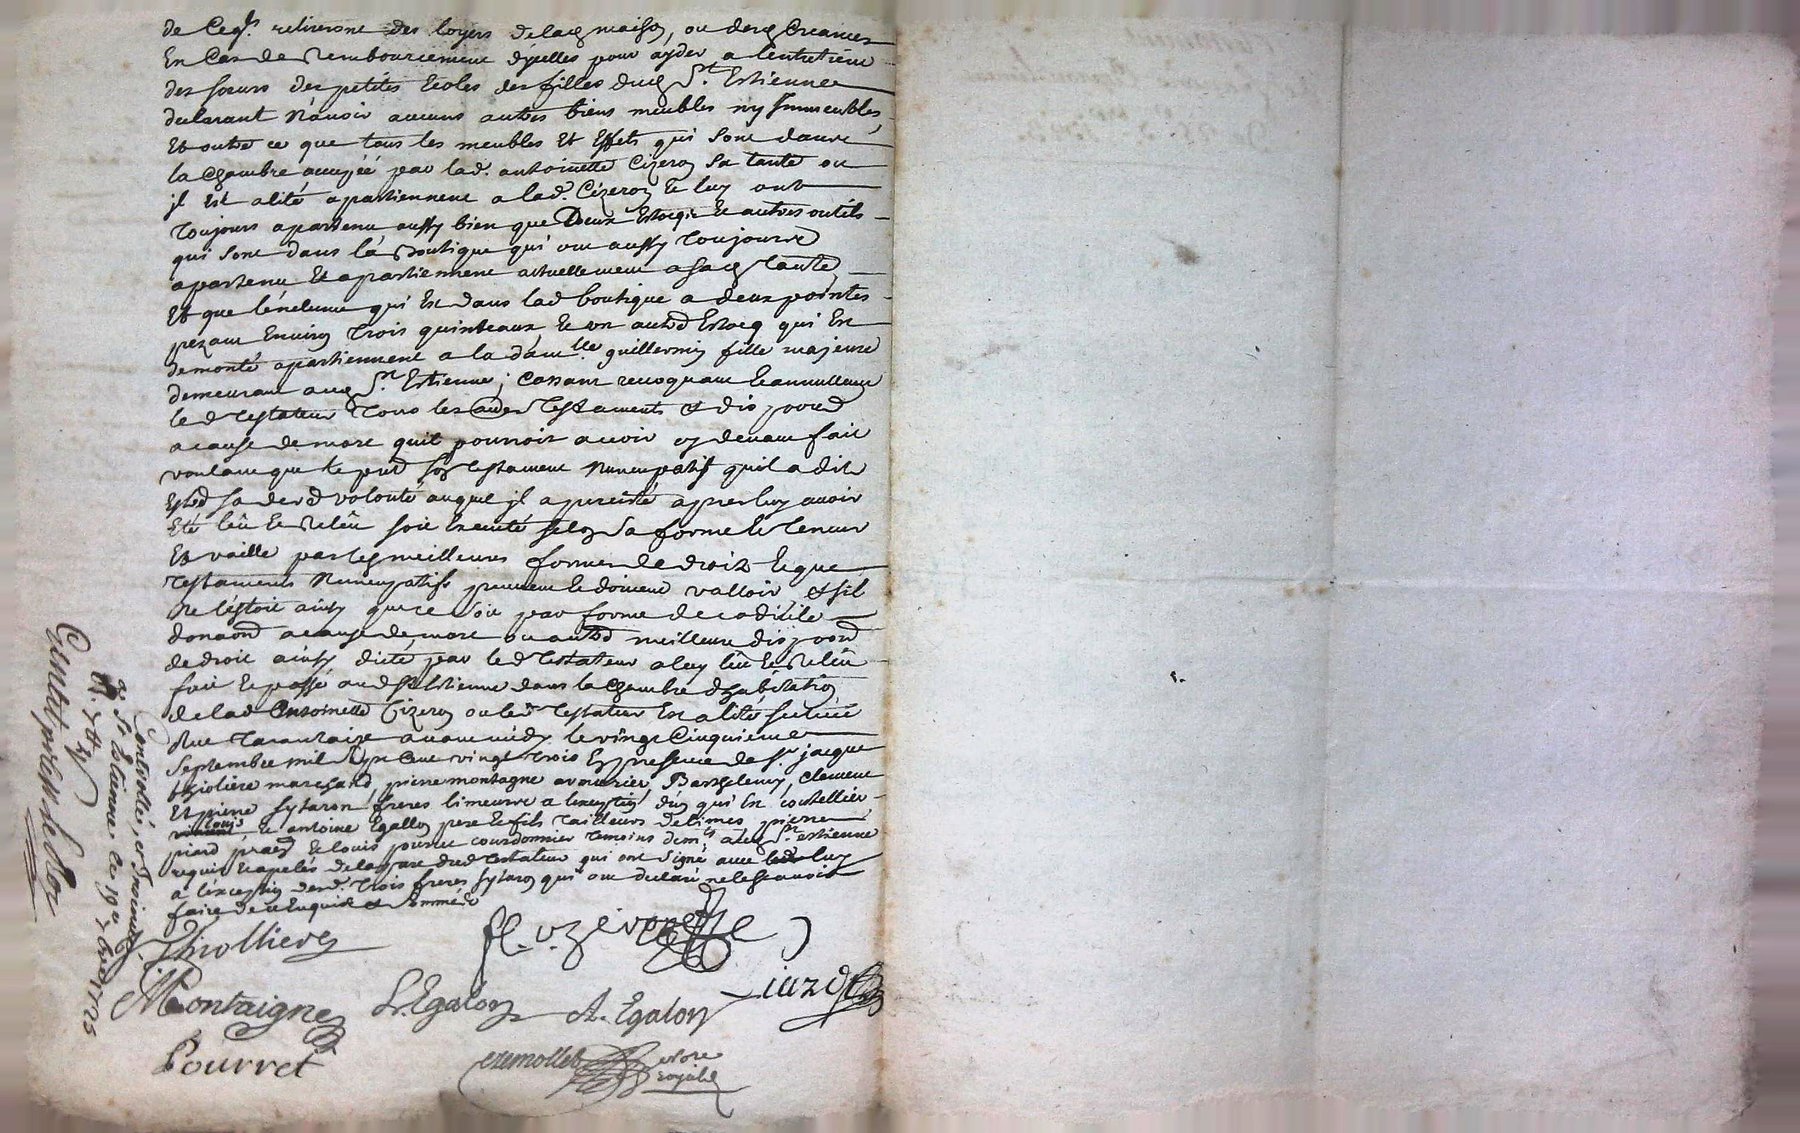 de ceq. retireront des loyers delad maison, ou desd Creances
En Cas de Remboursement d'ycelles pour ayder a lentretien
des soeurs des petites Ecoles des filles dud St. Estienne
declarant N'avoir aucuns autres biens meubles ny Immeubles,
Et outre ce que tous les meubles Et Effets qui sont dans
la chambre occupée par lad. antoinette Cizeron sa tante ou
jl Est alité apartiennent a lad. Cizeron Et luy ont
Toujours apartenu aussy bien que Deux Estocqs Et autres outils
qui sont dans la Boutique qui ont aussy Toujours
apartenu Et apartiennent actuellement a sad Tante
Et que lénclume qui Est dans lad boutique a deux pointes
pezant Environ Trois quinteaux Et un autre Estocq qui Est
demonté apartiennent a la dam.lle guillermin fille majeure
demeurant aud St. Estienne; Cassant revoquant Et annullant
led Testateur Tous les autres Testaments Et dispoon
a cause de mort quil pourroit avoir cy devant fait
voulant que le pnt son Testament Nuncupatif quil a dit
Estre sa dere volonté auquel jl a persisté apres luy avoir
Eté leû Et Releû soit Executé selon sa forme Et Teneur
Et vaille par les meilleures formes de droit Et que
Testaments Nuncupatifs peuvent Et doivent valloir Et sil
Ne l'éstoit ainsy que ce soit par forme de codicile
donaon a cause de mort ou autre meilleure dispoon
de droit ainsy dicté par led Testateur a luy leû Et Releû
fait Et passé aud St Estienne dans la chambre d'habitation
de lad Antoinette Cizeron ou led Testateur Est alité scituée
Rue Tarantaize avant midy le vingt Cinquieme
Septembre mil Sept Cent vingt Trois En presence de Sr. jacque
thiolliere marchand, pierre montagne armurier, Barthelemy, Clement
Et pierre sytaron freres limeurs a lexception d'un qui Est coutellier
Louis Et antoine Egallon pere Et fils Tailleurs de limes pierre
piard Et Louis pourret courdonnier Temoins dem.ts aud St. estienne
requis Et apelés de la part dud Testateur qui ont signé avec luy
a l'exception desd. Trois freres sytaron qui ont declaré ne le scavoir
faire de ce Enquis et sommés
Thiolliere
Montaigne
L. Egalon
A. Egalon
Pourret
notere
royal
Controllé, et Insinué
a St Estienne le 19e 1725